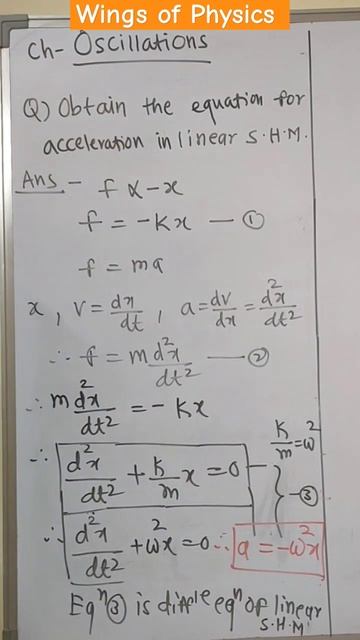 Wings of Physics
Ch- Oscillations
Q) Obtain the equation for
acceleration in linear S.H.M.
Ans - f ∝ -x
f = -Kx — ①
f = ma
x , v = dx/dt , a = dv/dx = d²x/dt²
∴ f = m d²x/dt² — ②
∴ m d²x/dt² = - Kx
K/m = ω²
∴ d²x/dt² + K/m x = 0
③
∴ d²x/dt² + ω²x = 0 ∴ a = -ω²x
Eqⁿ ③ is diffle eqⁿ of linear
S.H.M